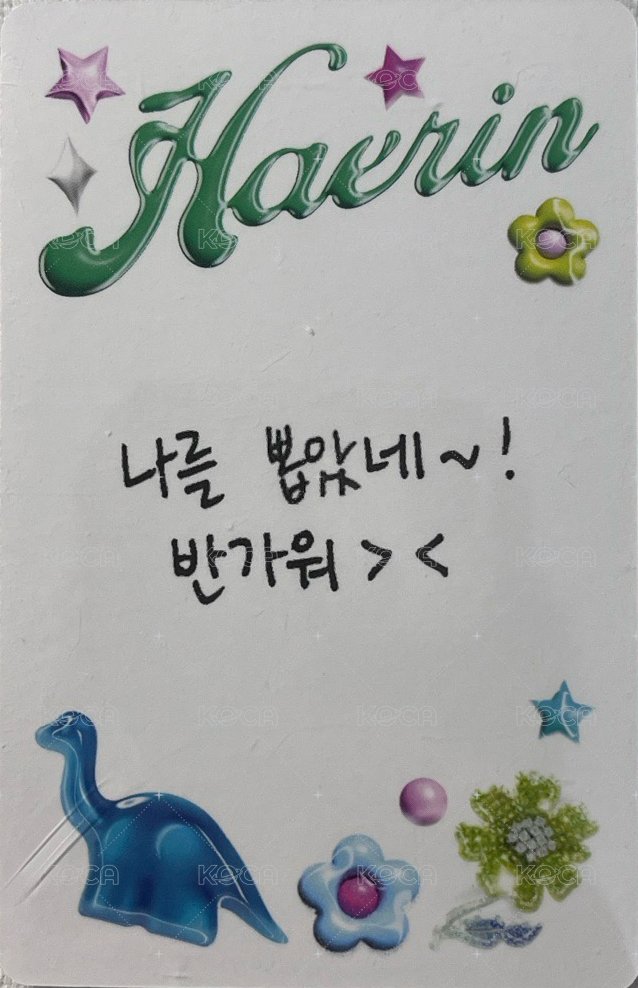 Haerin
나를 뽑았네~!
반가워 > <
KCCA